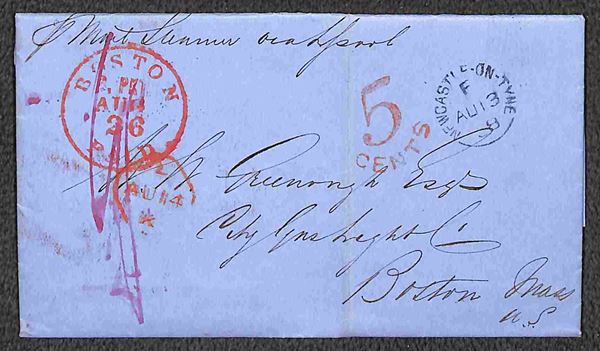 Mail Steamer via Liverpool
BOSTON
AUG
26
5
CENTS
NEWCASTLE-ON-TYNE
F
AU 13
AU 14
W W Greenough Esqr
City Gas Light Co
Boston Mass
U.S.